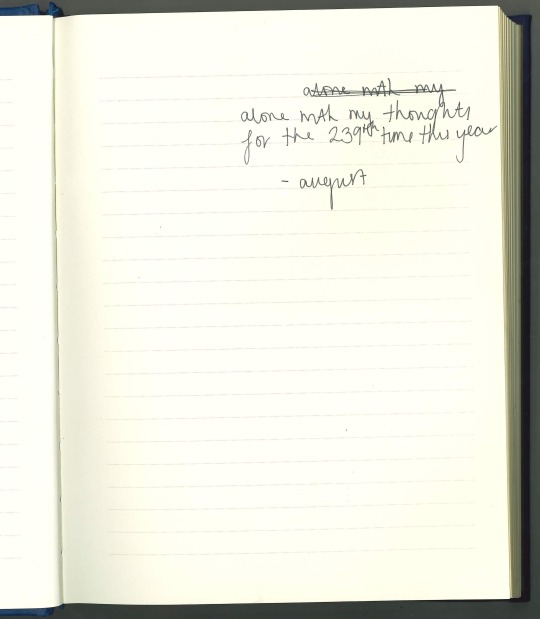 alone with my
alone with my thoughts
for the 239th time this year
- august